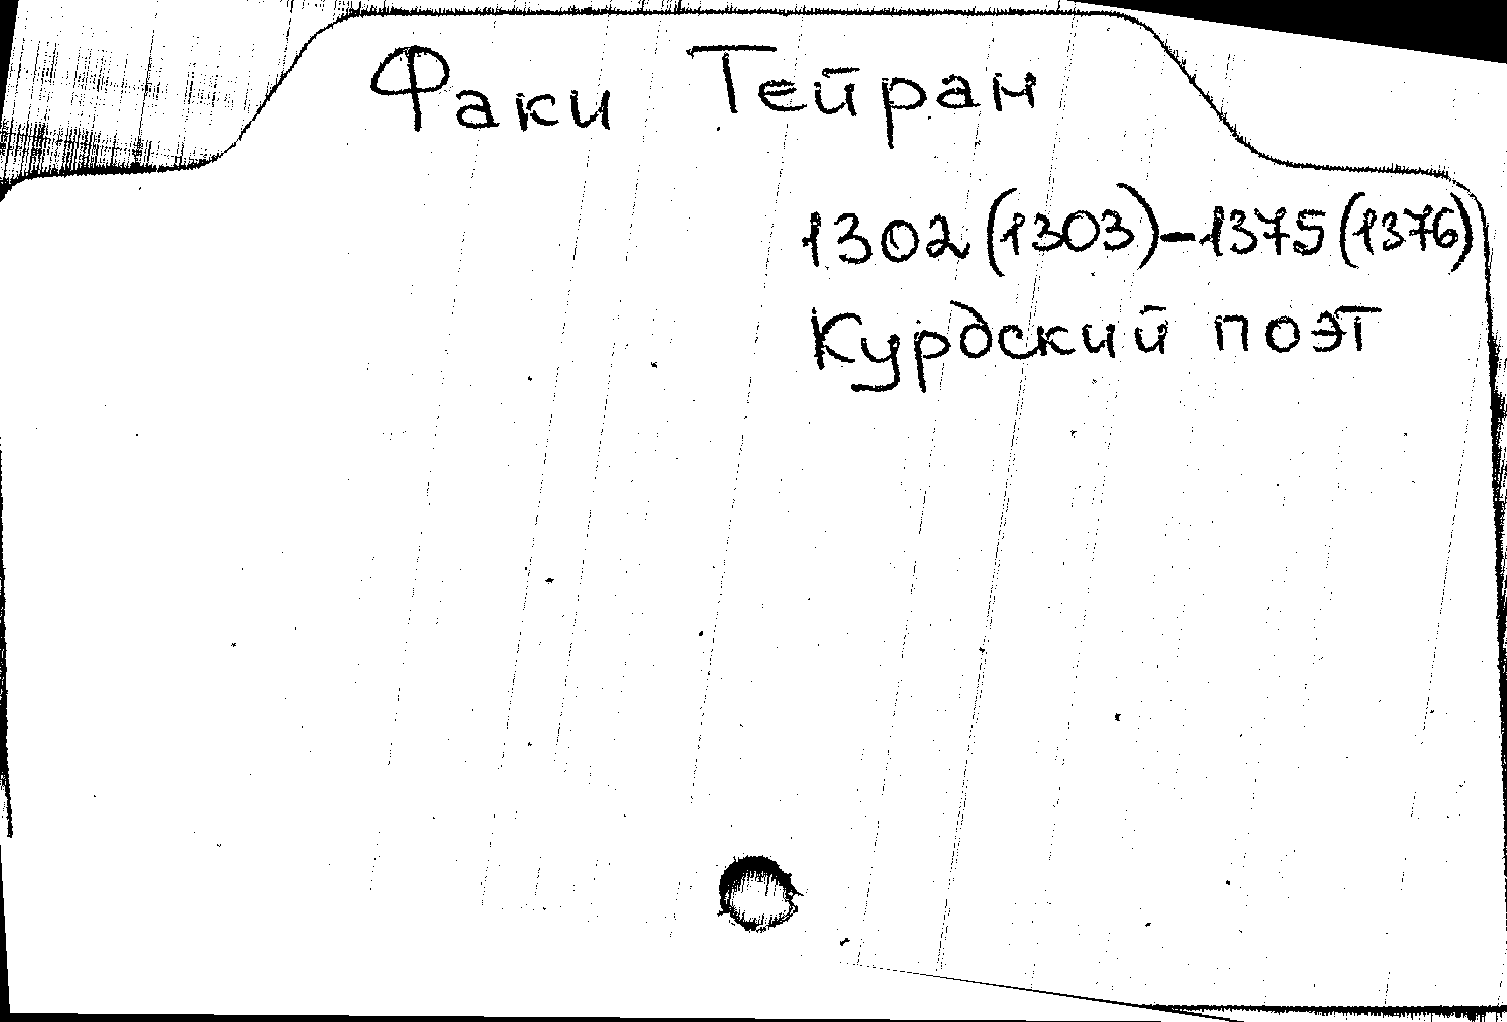 Факи Тейран
1302 (1303) – 1375 (1376)
Курдский поэт